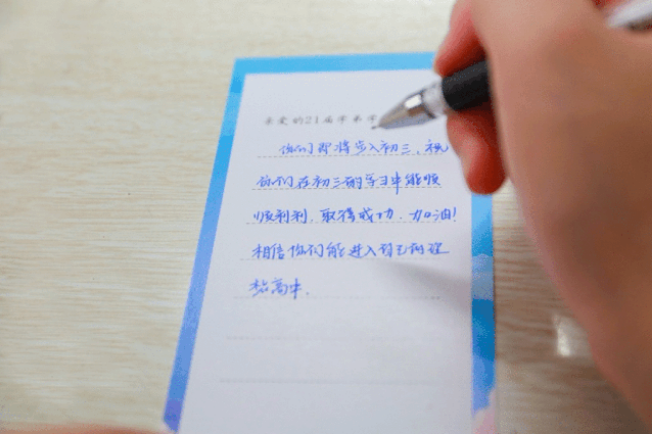 亲爱的21届学弟学
你们即将步入初三，祝
你们在初三的学习中能顺
顺利利，取得成功．加油！
相信你们能进入自己的理
想高中．